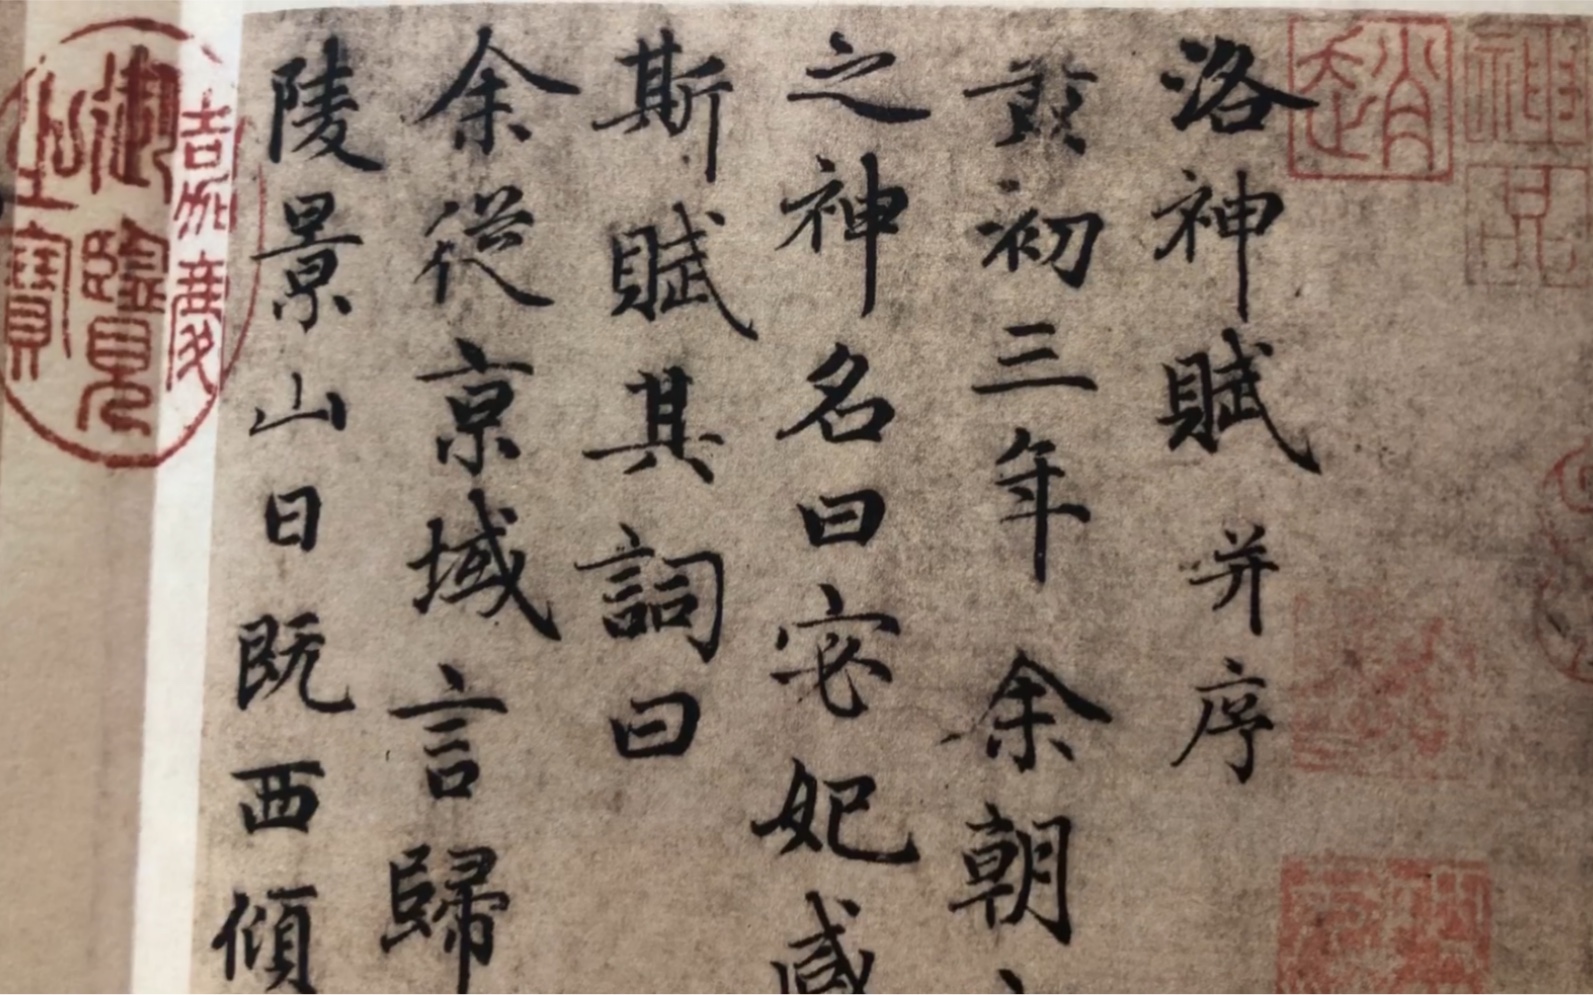 洛神賦并序
黄初三年余朝
之神名曰宓妃感
斯賦其詞曰
余從京域言歸
陵景山日既西傾
嘉慶
御覽
之寶
趙